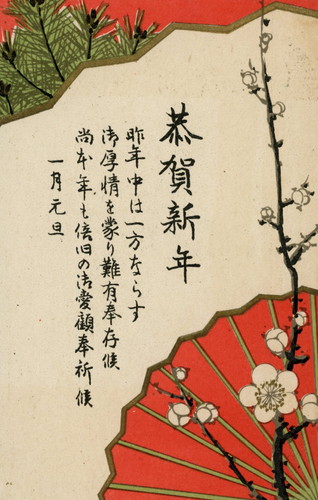 恭賀新年
昨年中は一方ならす
御厚情を蒙り難有奉存候
尚本年も倍旧の御愛顧奉祈候
一月元旦